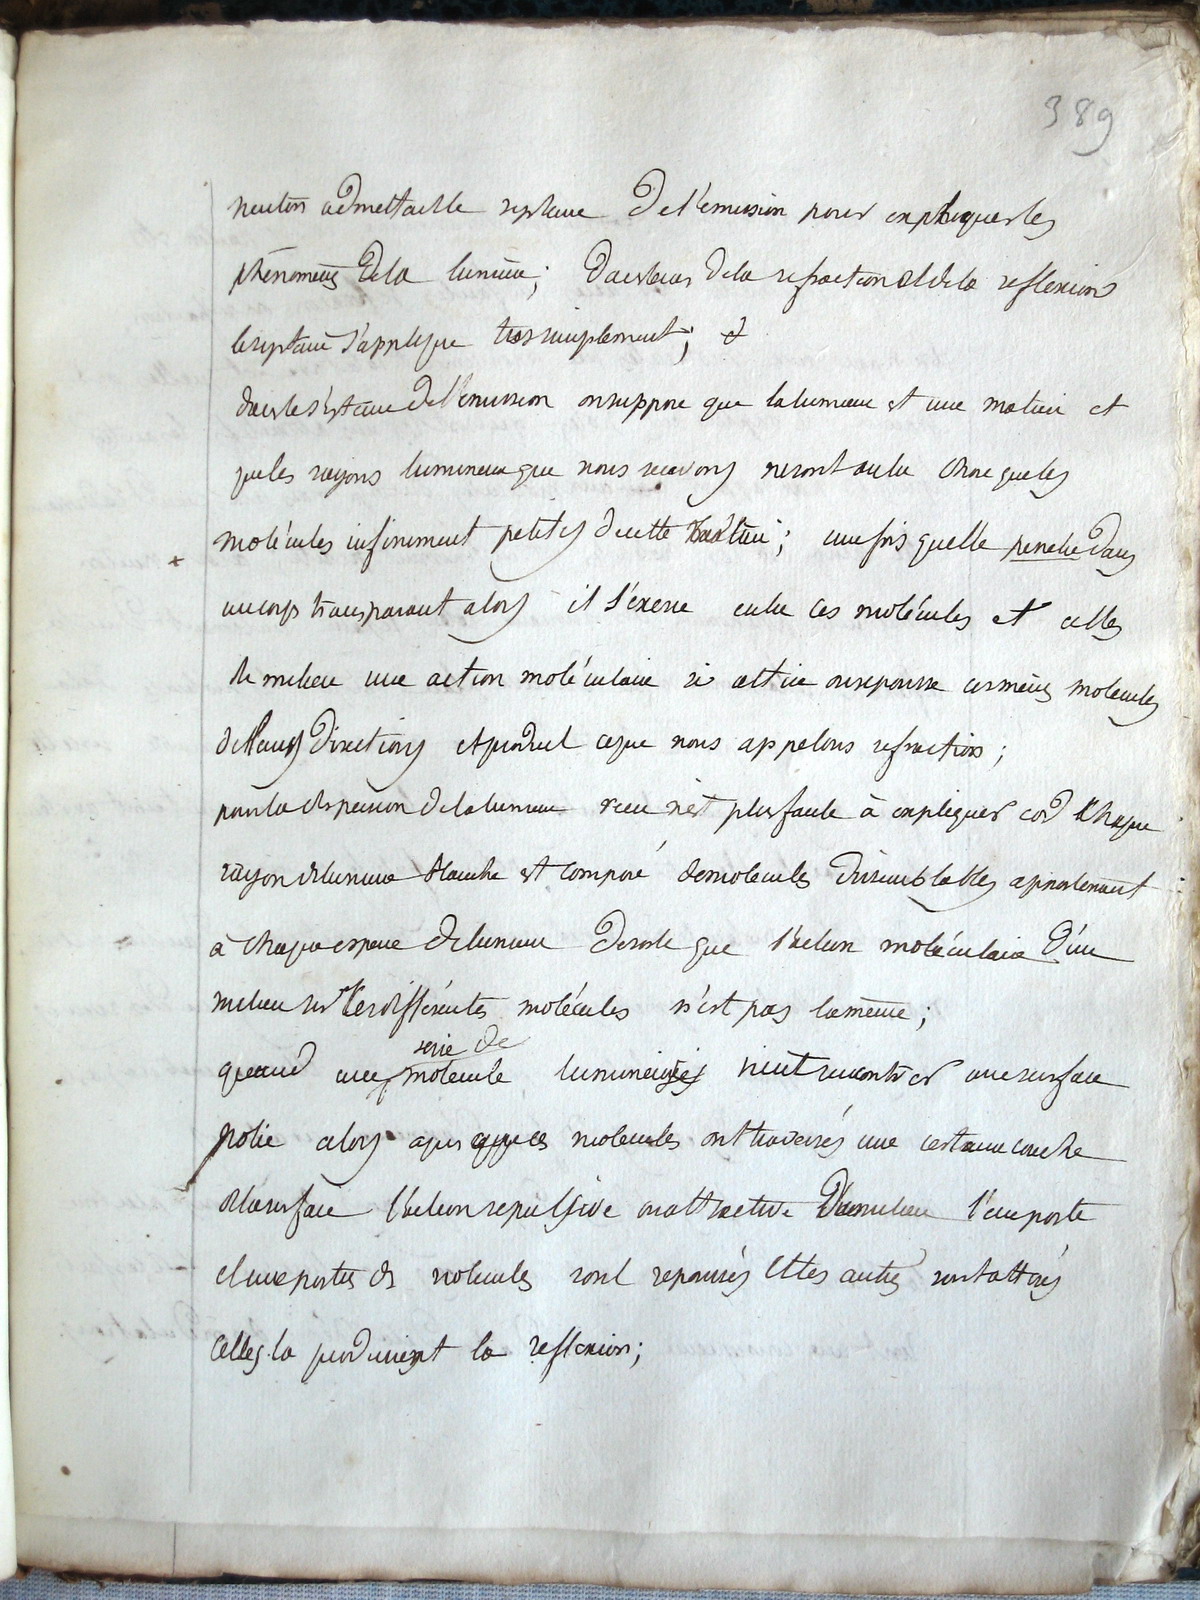 389
neuton admettait le systeme De l'emission pour expliquer les
phénomenes De la lumiere; Dans le cas De la refraction et de la reflexion
le systeme s'applique tres simplement; &
dans le systeme De l'emission on suppose que la lumiere est une matiere et
que les rayons lumineux que nous recevons ne sont autre chose que les
molécules infiniment petites De cette matiere; une fois quelle penetre Dans
un corps transparant alors il s'exerce entre ces molécules et celles
du milieu une action moléculaire qui attire ou repousse ces mêmes molecules
de leurs Directions et produit ce que nous appelons refraction;
pour la dispersion De la lumiere rien n'est plus facile à expliquer car chaque
rayon de lumiere blanche est composé de molecules Dissemblables appartenant
à chaque espece De lumiere De sorte que l'action moléculaire D'un
milieu sur les différentes molécules n'est pas la même;
serie de
quand une molecule lumineuses vient rencontrer une surface
polie alors apres que ces molecules ont traversés une certaine couche
de la surface l'action repulsive ou attractive Du milieu l'emporte
et une partie des molecules sont repoussés et les autres sont attirés
celles la produisent la reflexion;